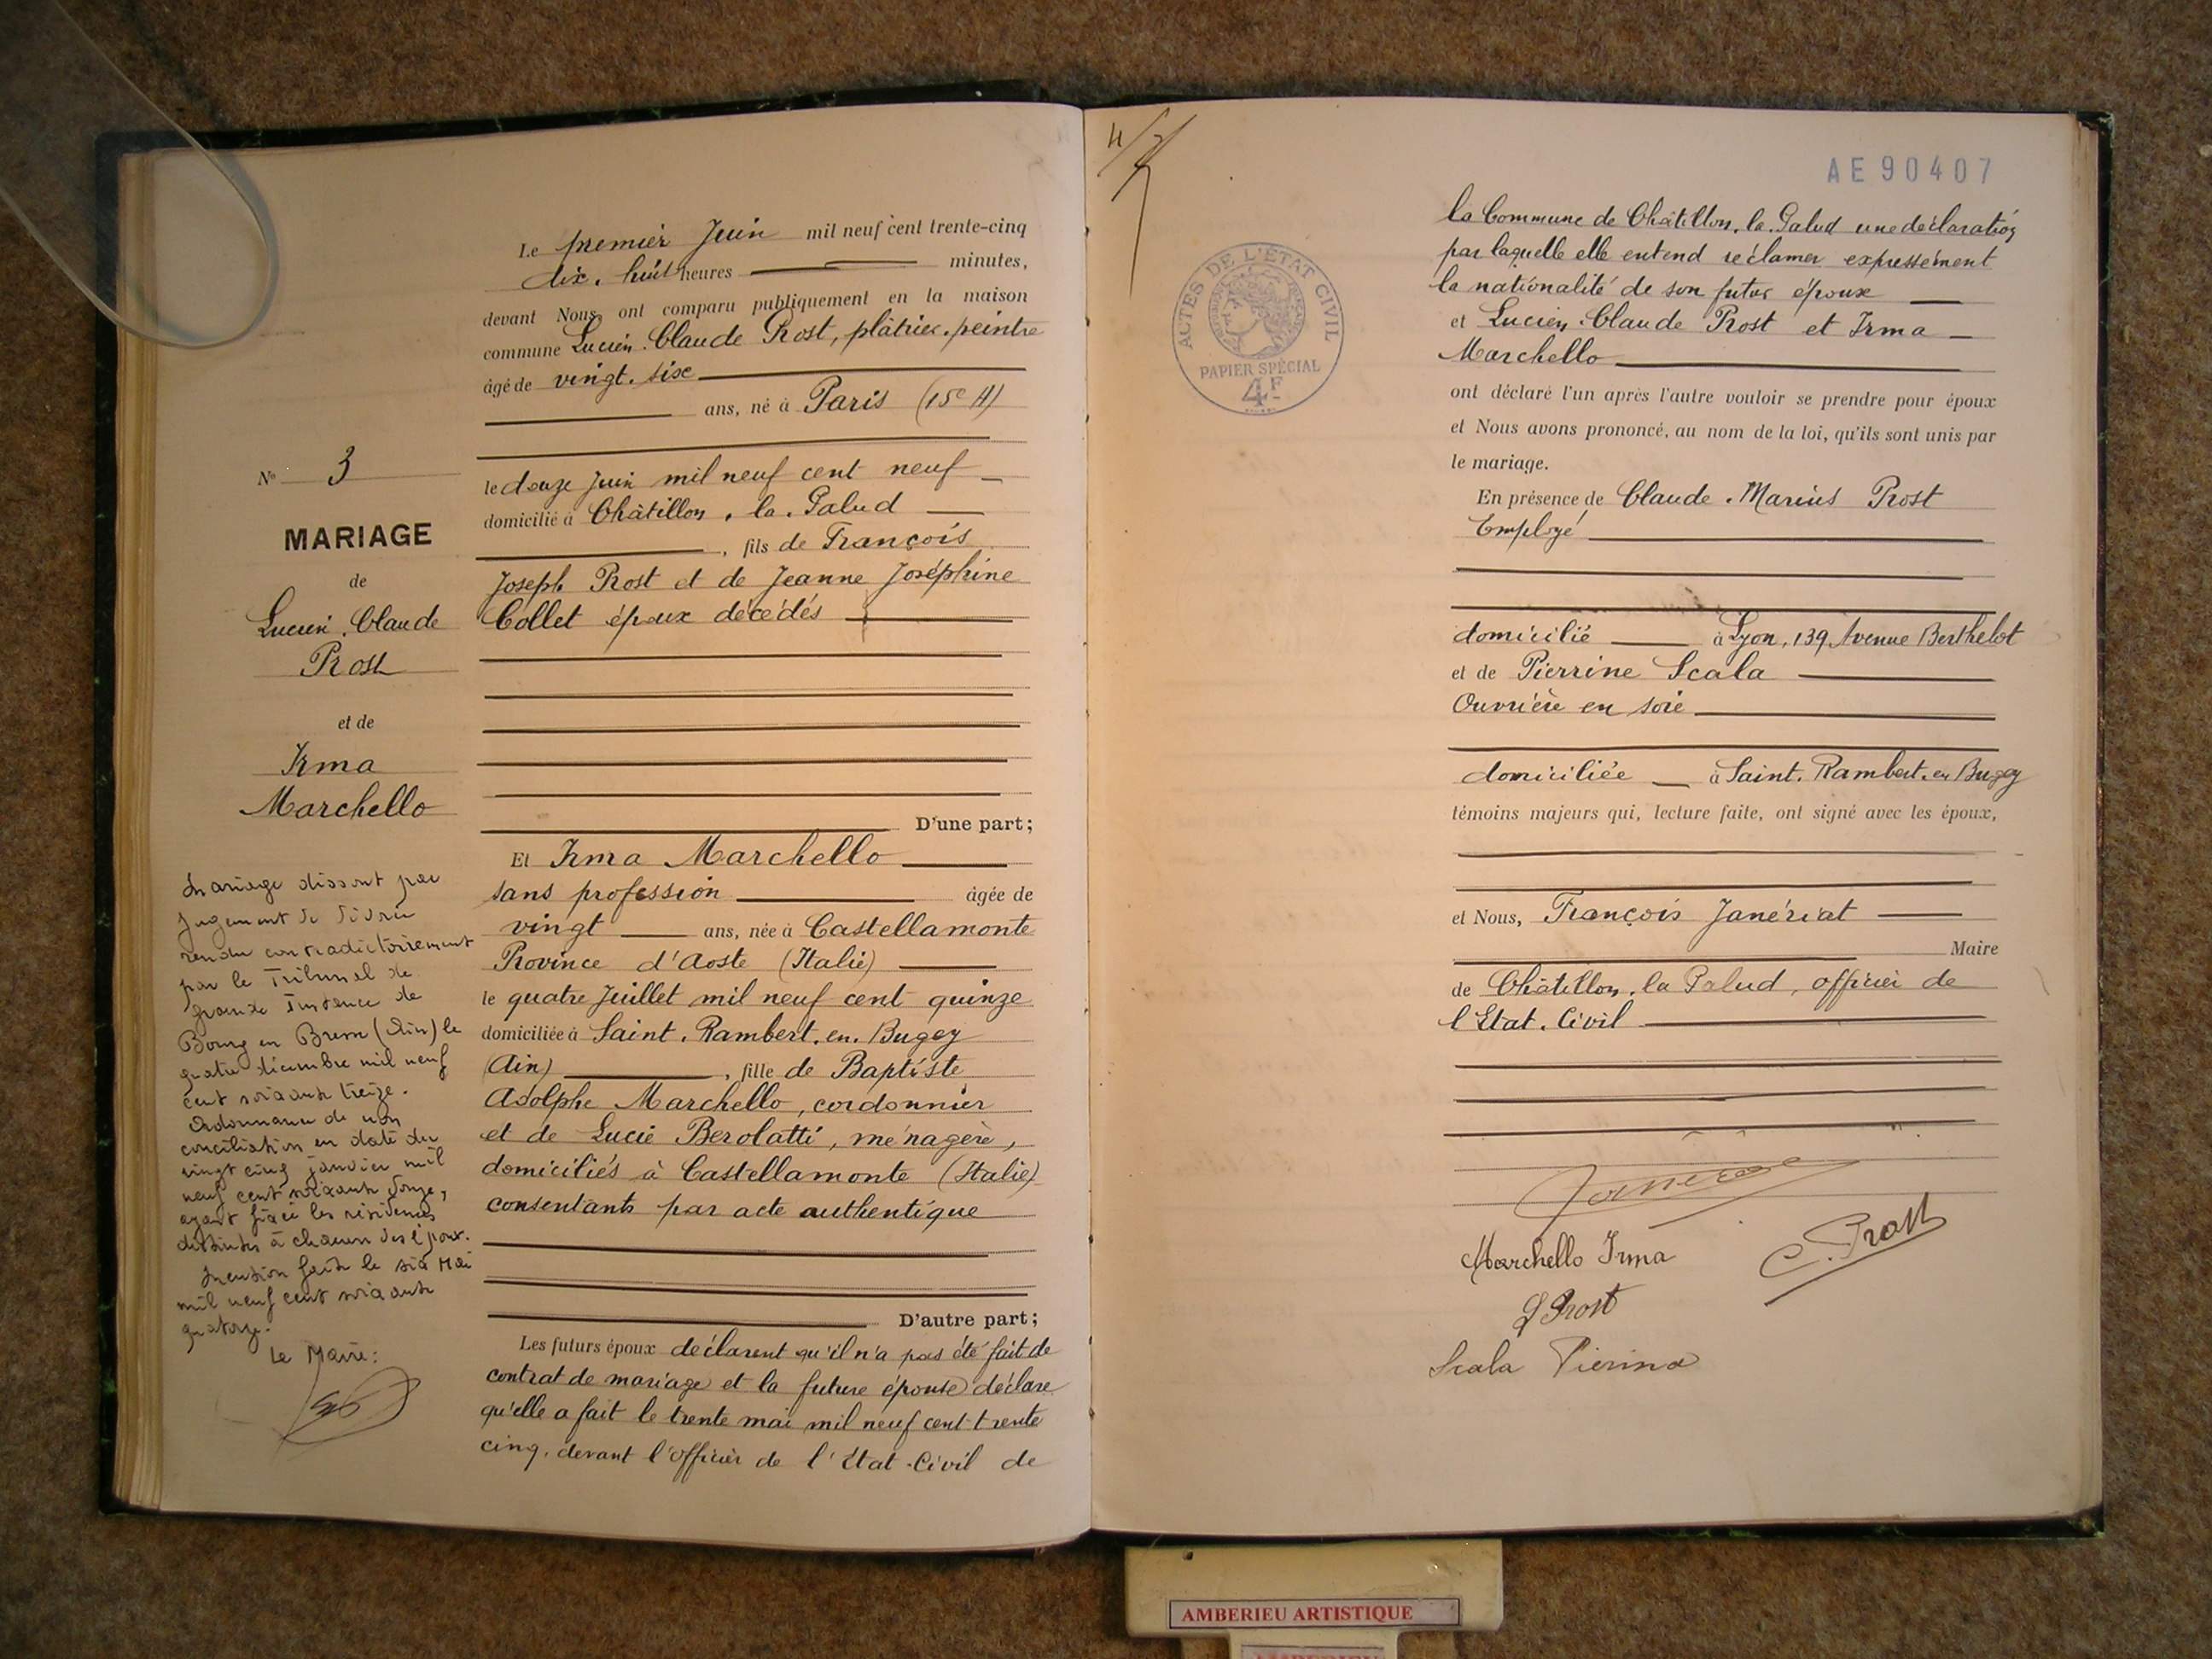 Le premier Juin mil neuf cent trente-cinq
dix. huit heures minutes,
devant Nous, ont comparu publiquement en la maison
commune Lucien. Claude Prost, plâtrier. peintre
âgé de vingt. six
ans, né à Paris (15e A)
le douze Juin mil neuf cent neuf
domicilié à Châtillon. la. Palud
, fils de François
Joseph Prost et de Jeanne Joséphine
Collet époux décédés
D'une part;
Et Irma Marchello
sans profession âgée de
vingt ans, née à Castellamonte
Province d'Aoste (Italie)
le quatre Juillet mil neuf cent quinze
domiciliée à Saint. Rambert. en. Bugey
(Ain) , fille de Baptiste
Adolphe Marchello, cordonnier
et de Lucie Berolatti, ménagère,
domiciliés à Castellamonte (Italie)
consentants par acte authentique
D'autre part;
Les futurs époux déclarent qu'il n'a pas été fait de
contrat de mariage et la future épouse déclare
qu'elle a fait le trente mai mil neuf cent trente
cinq. devant l'officier de l'Etat-Civil de
No 3
MARIAGE
de
Lucien. Claude
Prost
et de
Irma
Marchello
Mariage dissout par
Jugement de divorce
rendu contradictoirement
par le Tribunal de
grande Instance de
Bourg en Bresse (Ain) le
quatre décembre mil neuf
cent soixante treize.
Ordonnance de non
conciliation en date du
vingt cinq janvier mil
neuf cent soixante douze,
ayant fixé les résidences
distinctes à chacun des époux.
Mention faite le six Mai
mil neuf cent soixante
quatorze.
Le Maire:
4/
AE 90407
ACTES DE L'ÉTAT CIVIL
PAPIER SPÉCIAL
4F
la Commune de Châtillon. la. Palud une déclaration
par laquelle elle entend réclamer expressément
la nationalité de son futur époux
et Lucien. Claude Prost et Irma
Marchello
ont déclaré l'un après l'autre vouloir se prendre pour époux
et Nous avons prononcé, au nom de la loi, qu'ils sont unis par
le mariage.
En présence de Claude. Marius Prost
Employé
domicilié à Lyon, 139, Avenue Berthelot
et de Pierrine Scala
Ouvrière en soie
domiciliée à Saint. Rambert. en Bugey
témoins majeurs qui, lecture faite, ont signé avec les époux,
et Nous, François Janériat
Maire
de Châtillon. la Palud, officier de
l'Etat. Civil
Marchello Irma
C. Prost
L Prost
Scala Pierina
AMBERIEU ARTISTIQUE